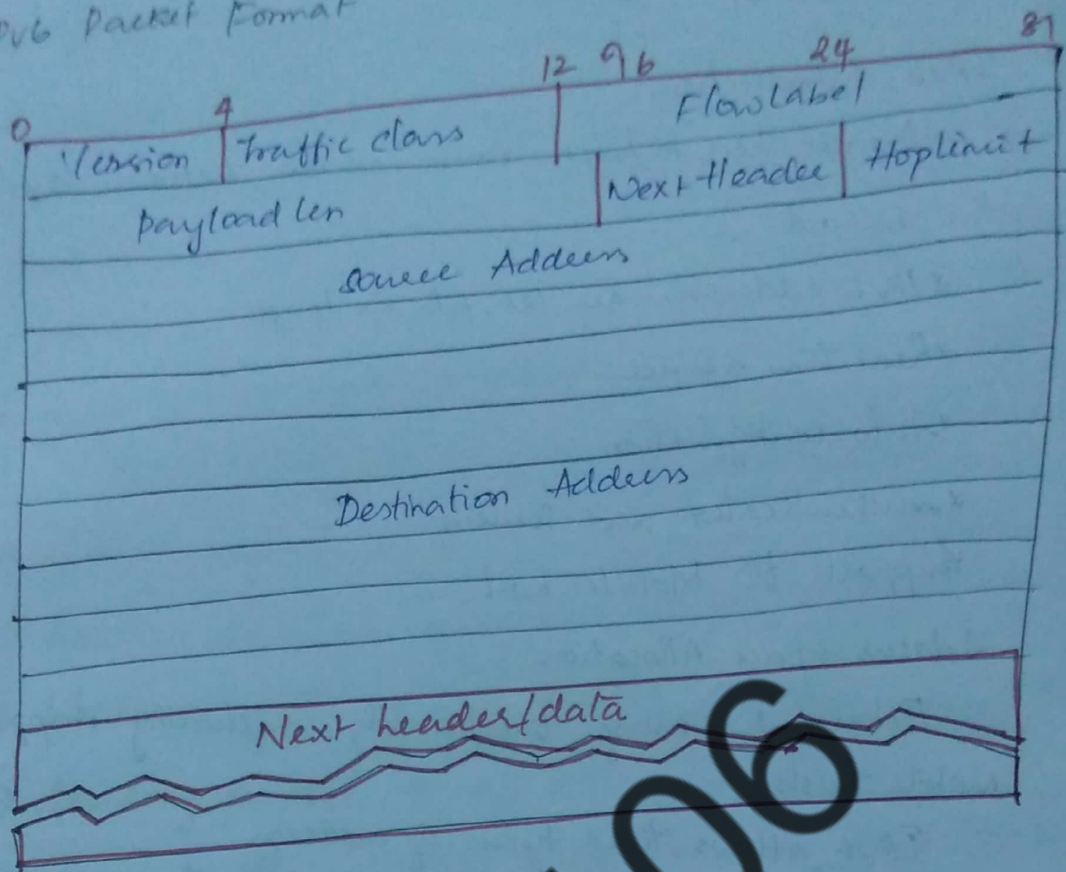 Packet Format
0 4 12 96 24 31
Version Traffic class Flowlabel
Payload len Next Header Hoplimit
Source Address
Destination Address
Next header/data
06